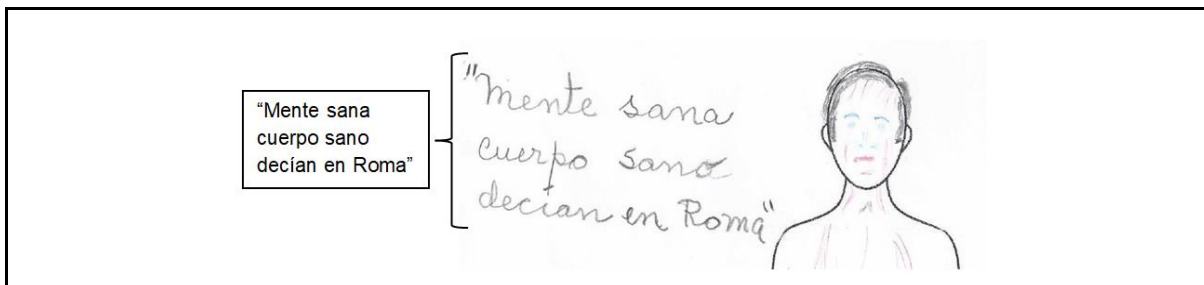 “Mente sana
cuerpo sano
decían en Roma”
"Mente sana
cuerpo sano
decían en Roma"